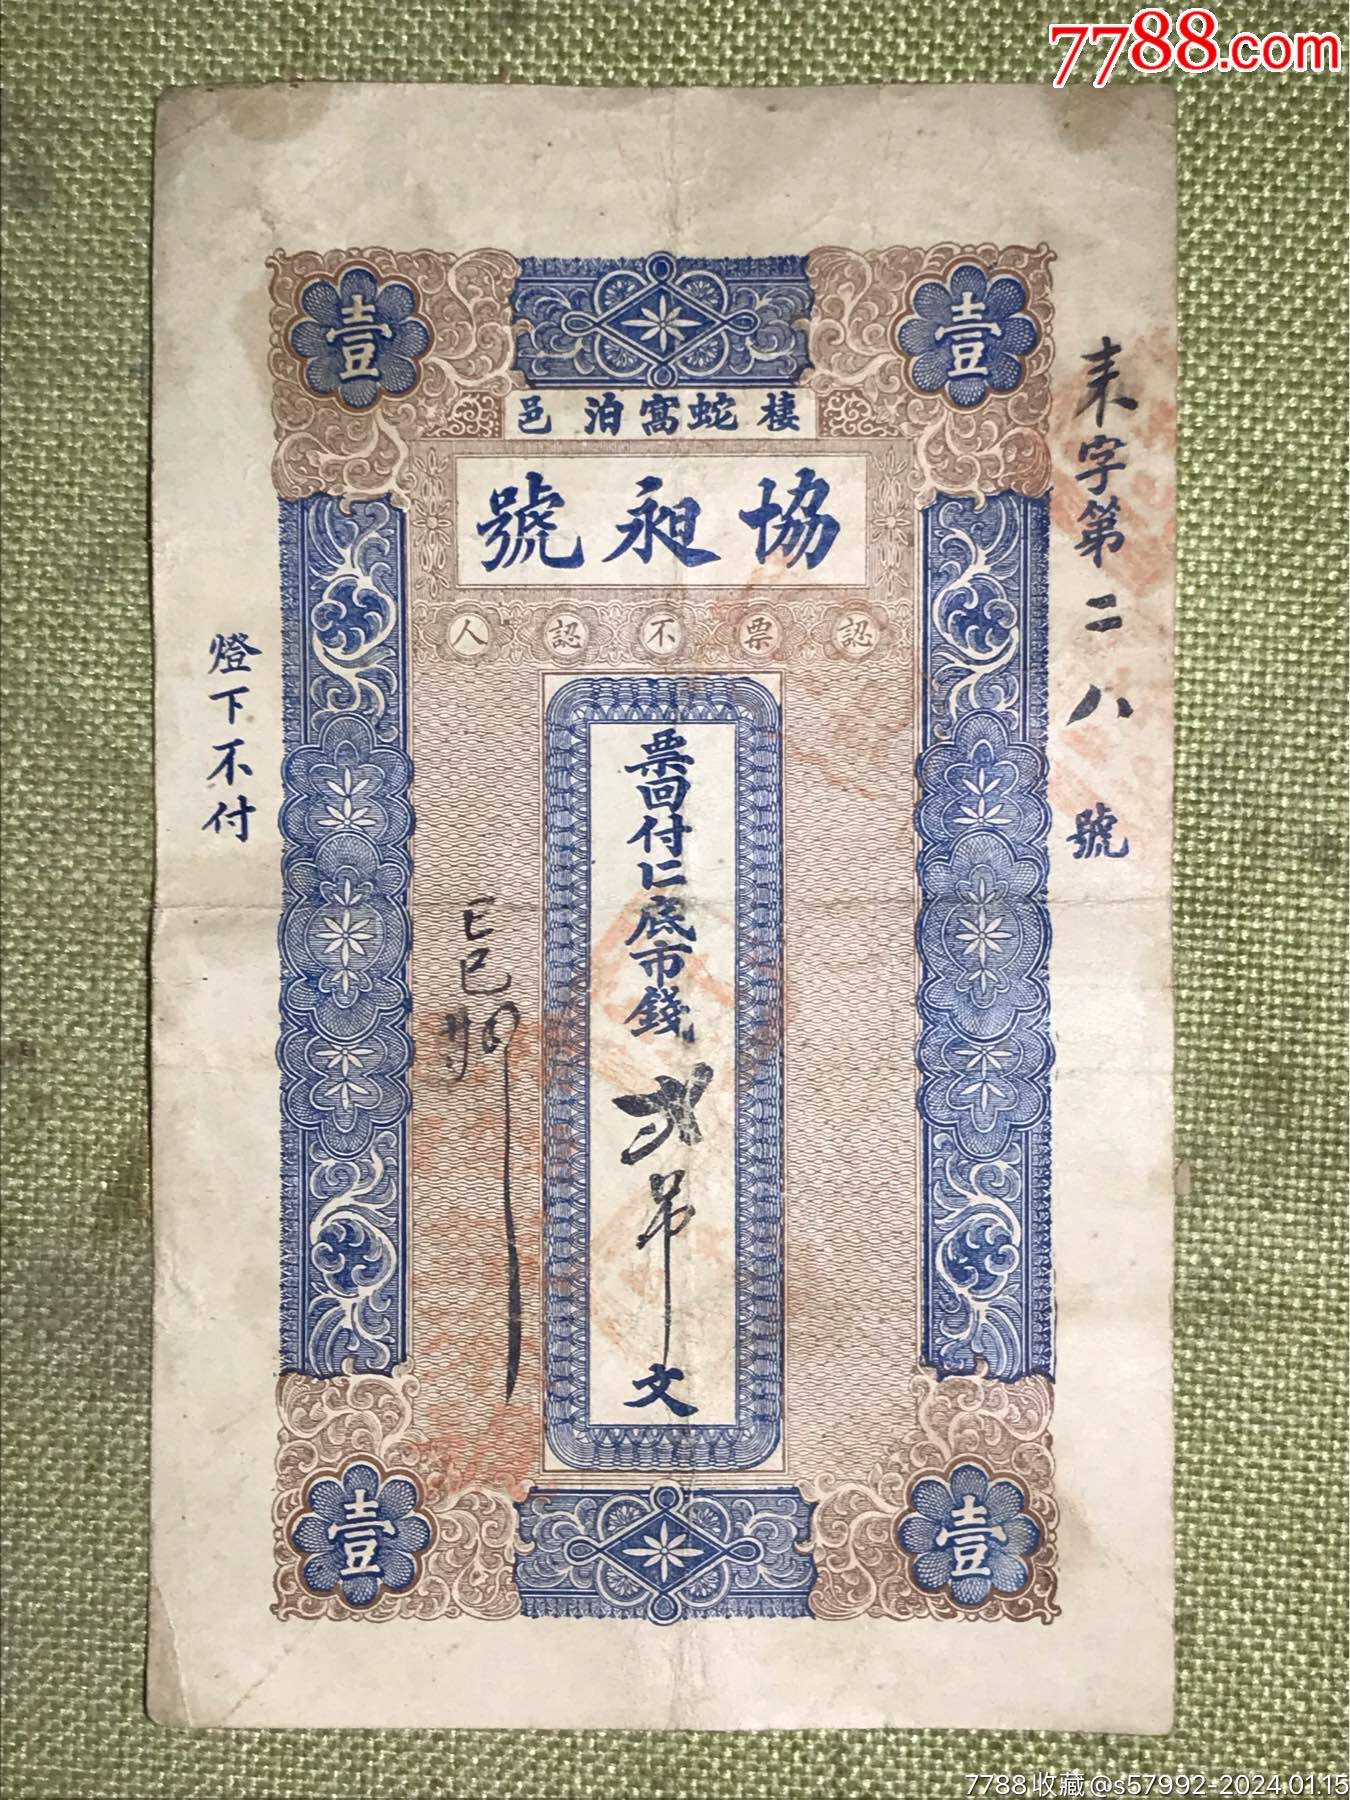 7788.com
壹
壹
棲蛇窩泊邑
協昶號
認票不認人
来字第二八號
票回付仁底市錢弍吊文
己巳
燈下不付
壹
壹
7788收藏@s57992-2024.01.15